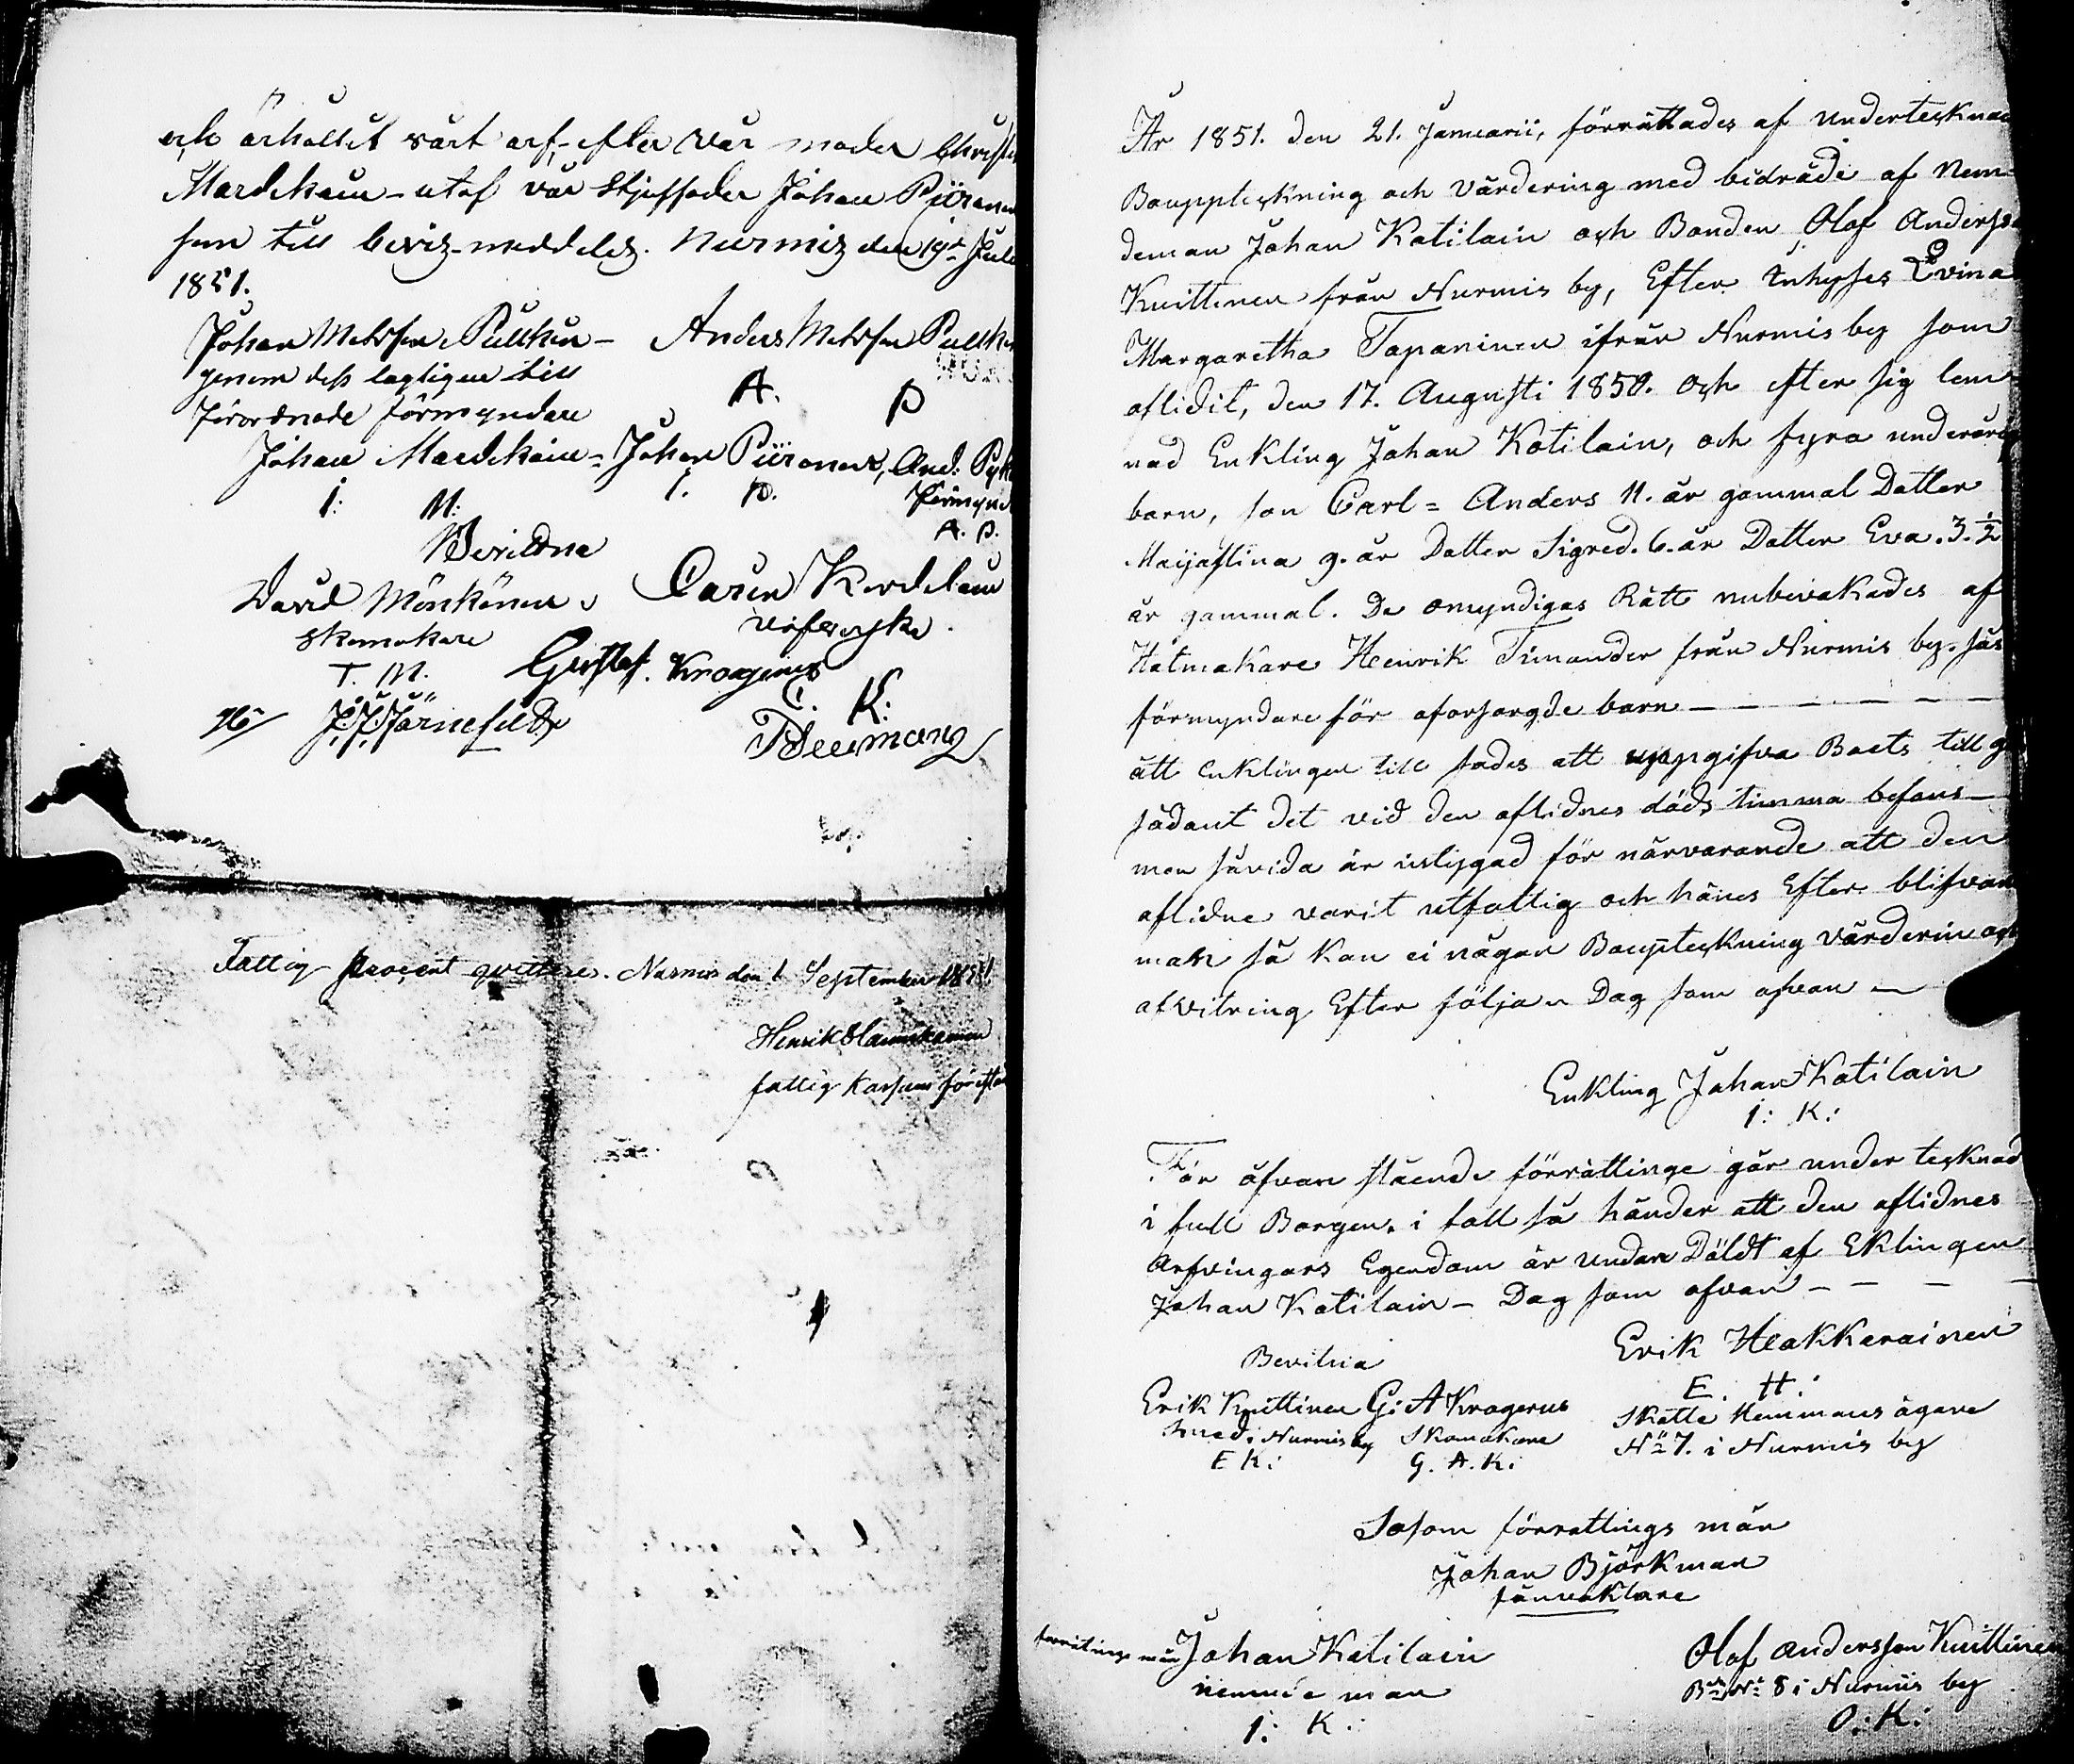 och erhållit vårt arf, efter vår moder Christin
Mardekain - utaf vår Stjuffader Johan Piironen
som till bevis meddelas. Nurmis den 19de Juli
1851.
Johan Matsson Pulkin - Anders Matsson Pulkin
genom dess lagligen till
förordnade förmyndare A. P
Johan Mardekain = Johan Piironen, And: Pyk
I: M: I. P. förmynd
A. P.
Bevittna
David Mönkönen Carin Kordelain
Skomakare
T. M. Gustaf. Krogerus
C. K:
J. J. Järnefeldt
Fattig procent qvitteras. Nurmis den 1 September 1851
Henrik
fattig Kassans förestån
År 1851. den 21. Januarii, förrättades af undertecknad
Bouppteckning och värdering med biträde af Nem=
deman Johan Katilain och Bonden Olof Anderss
Knittinen från Nurmis by, Efter Inhyses Evina
Margaretha Tapaninen ifrån Nurmis by som
aflidit, den 17. Augusti 1850. och efter sig lem
nad Enkling Johan Katilain, och fyra underåri
barn, son Carl = Anders 11. år gammal Datter
Maijastina 9. år Datter Sigred. 6. år Datter Eva. 3. ½
år gammal. De omyndigas Rätt nubevakades af
Hatmakare Henrik Timander från Nurmis by. sås
förmyndare för oforsorgde barn - - - - - -
att Enklingen till sades att uppgifva Boets till g
sådant det vid den aflidnes döds timma befans -
men såvida är uslygad för närvarande att den
aflidne varit utfattig och hänes Efter blifvan
make så kan ei någon Boupteckning värderin och
afvitring Efter följa Dag som ofvan -
Enkling Johan Katilain
I: K:
För ofvan stående förrättinge går under tecknad
i full Borgen. i fall så händer att den aflidnes
Arfvingars Egendom är undan Döldt af Eklingen
Johan Katilain - Dag som ofvan - - - -
Bevitna Erik Heakkerainen
E. H.
Erik Knittinen G: A Krogerus Skatte Hemmans ägare
Smed i Nurmis by Skomakare No 7. i Nurmis by
E K: G. A. K:
Sosom förrattings män
Johan Björkman
fånvaktare
forrätings män Johan Katilain Olof Andersson Knittinen
nemnde man Bn No 8 i Nurmis by
I: K: O: K: